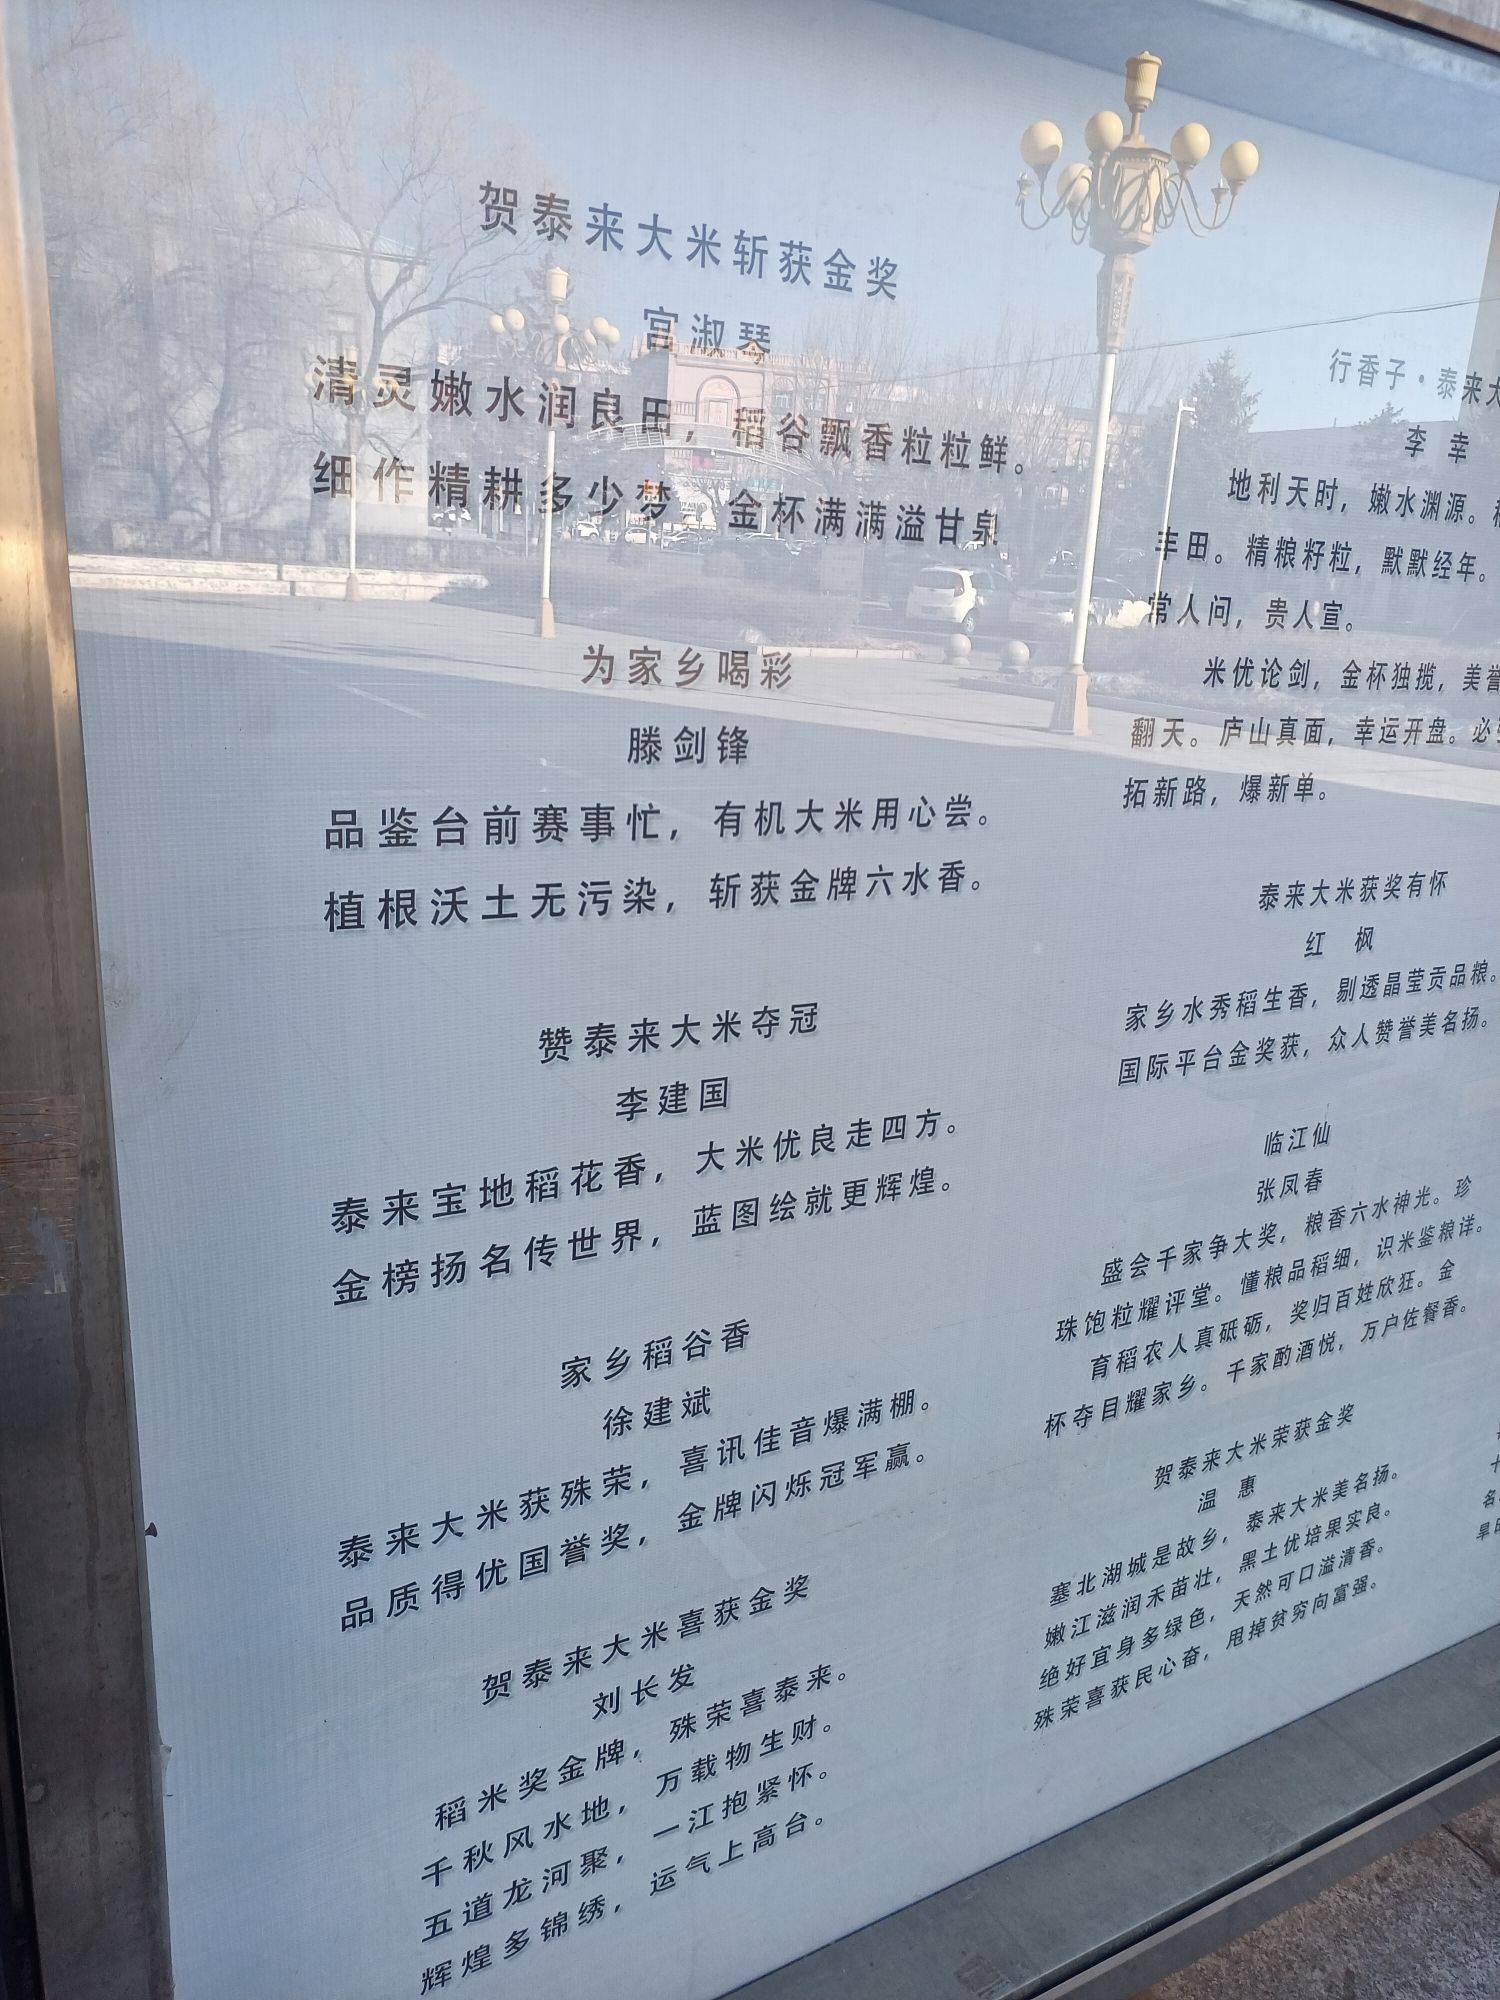 贺泰来大米斩获金奖
宫淑琴
清灵嫩水润良田，稻谷飘香粒粒鲜。
细作精耕多少梦，金杯满满溢甘泉
为家乡喝彩
滕剑锋
品鉴台前赛事忙，有机大米用心尝。
植根沃土无污染，斩获金牌六水香。
赞泰来大米夺冠
李建国
泰来宝地稻花香，大米优良走四方。
金榜扬名传世界，蓝图绘就更辉煌。
家乡稻谷香
徐建斌
泰来大米获殊荣，喜讯佳音爆满棚。
品质得优国誉奖，金牌闪烁冠军赢。
贺泰来大米喜获金奖
刘长发
稻米奖金牌，殊荣喜泰来。
千秋风水地，万载物生财。
五道龙河聚，一江抱紧怀。
辉煌多锦绣，运气上高台。
行香子·泰来大
李幸
地利天时，嫩水渊源。
丰田。精粮籽粒，默默经年。
常人问，贵人宣。
米优论剑，金杯独揽，美誉
翻天。庐山真面，幸运开盘。必
拓新路，爆新单。
泰来大米获奖有怀
红枫
家乡水秀稻生香，剔透晶莹贡品粮。
国际平台金奖获，众人赞誉美名扬。
临江仙
张凤春
盛会千家争大奖，粮香六水神光。珍
珠饱粒耀评堂。懂粮品稻细，识米鉴粮详。
育稻农人真砥砺，奖归百姓欣狂。金
杯夺目耀家乡。千家酌酒悦，万户佐餐香。
贺泰来大米荣获金奖
温惠
塞北湖城是故乡，泰来大米美名扬。
嫩江滋润禾苗壮，黑土优培果实良。
绝好宜身多绿色，天然可口溢清香。
殊荣喜获民心奋，甩掉贫穷向富强。